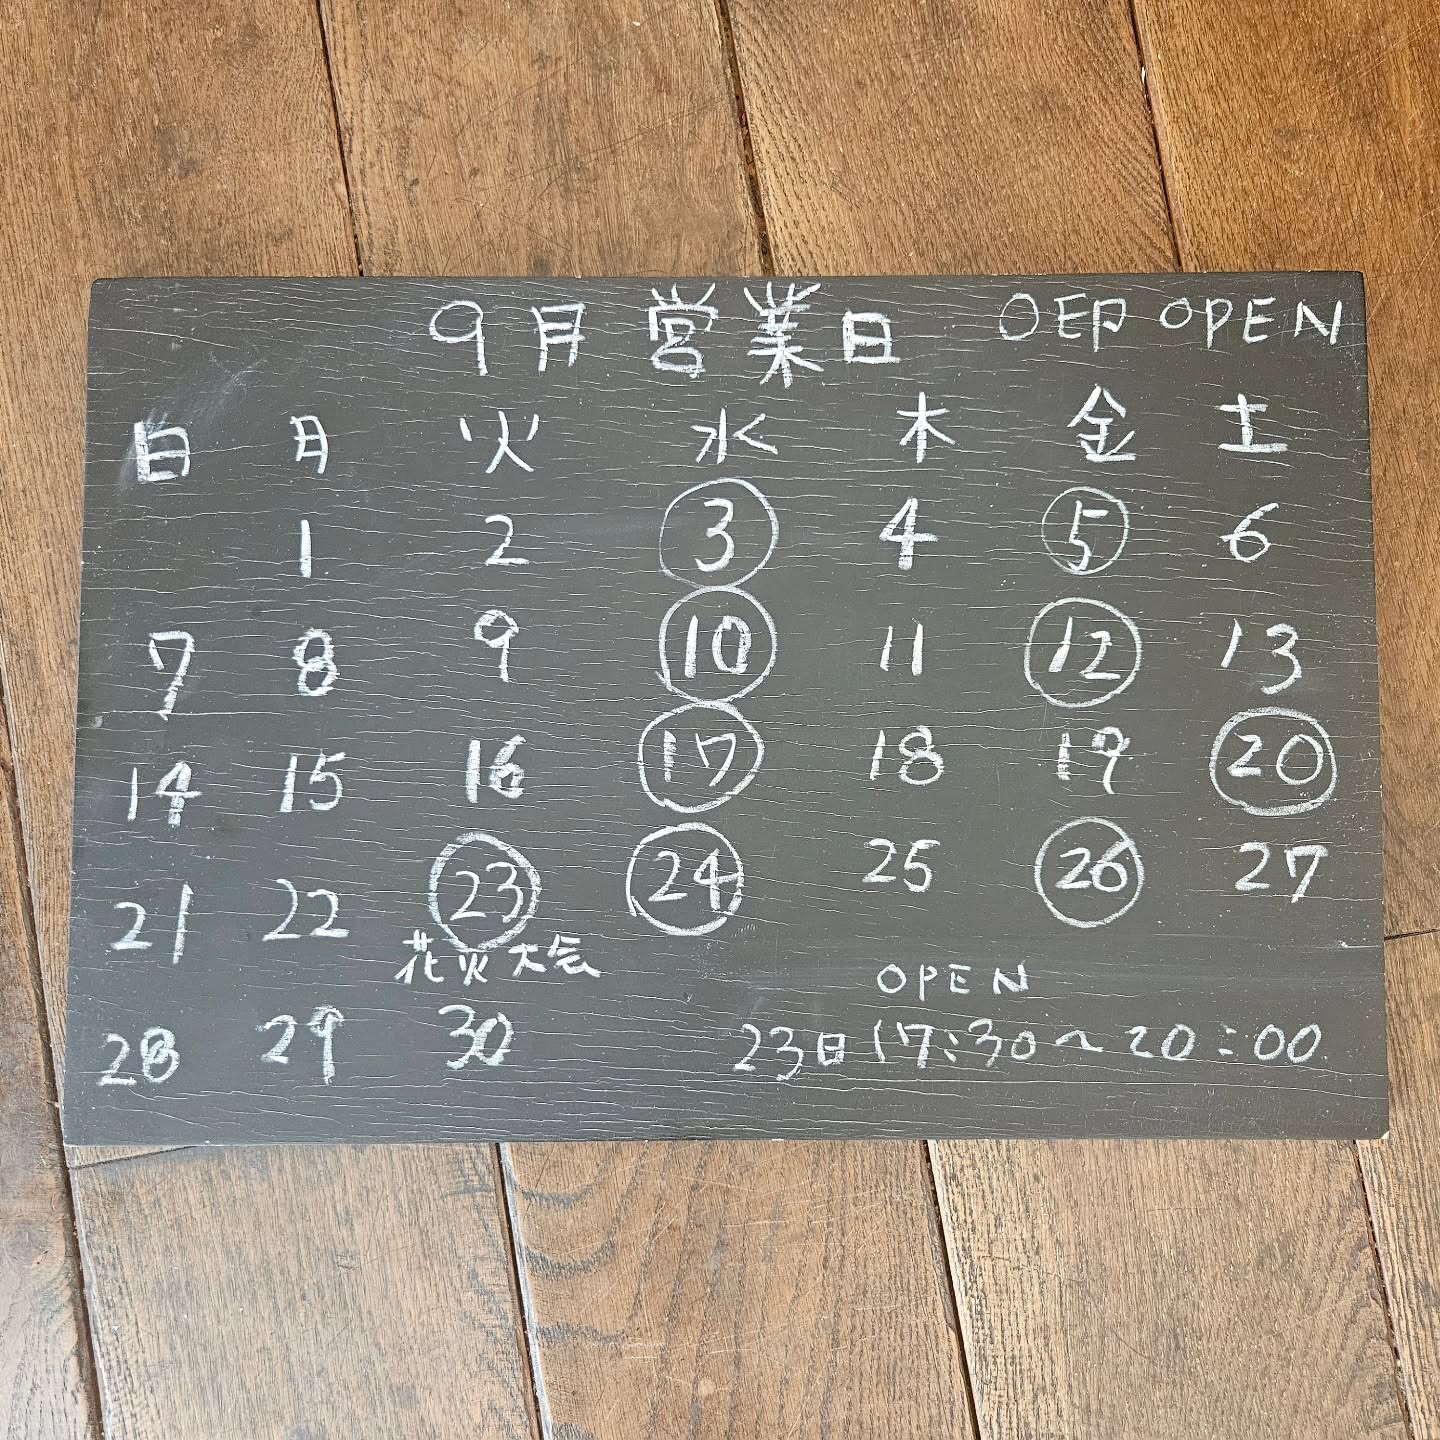 9月営業日 〇印 OPEN
日 月 火 水 木 金 土
1 2 3 4 5 6
7 8 9 10 11 12 13
14 15 16 17 18 19 20
21 22 23 24 25 26 27
花火大会
28 29 30
OPEN
23日 17:30〜20:00